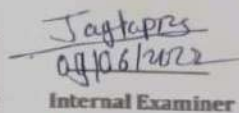 Jagtaprs
09/06/2022
Internal Examiner